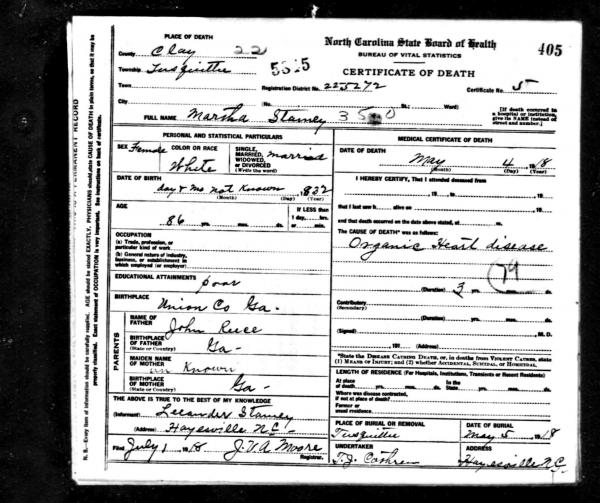 PLACE OF DEATH
County Clay 22
Township Tusquittee 5525
Town
City
North Carolina State Board of Health
BUREAU OF VITAL STATISTICS
405
CERTIFICATE OF DEATH
Registration District No. 225272 Certificate No. 5
No. St.; Ward)
[If death occurred in a hospital or institution, give its NAME instead of street and number.]
FULL NAME Martha Stamey
PERSONAL AND STATISTICAL PARTICULARS
SEX Female COLOR OR RACE White SINGLE, MARRIED, WIDOWED, or DIVORCED (Write the word) married
DATE OF BIRTH
day & mo not Known 1832
(Month) (Day) (Year)
AGE
86 yrs. mos. ds.
If LESS than 1 day, hrs. or min.
OCCUPATION
(a) Trade, profession, or particular kind of work
(b) General nature of industry, business, or establishment in which employed (or employer)
EDUCATIONAL ATTAINMENTS poor
BIRTHPLACE
Union Co Ga.
PARENTS
NAME OF FATHER John
BIRTHPLACE OF FATHER (State or Country) Ga-
MAIDEN NAME OF MOTHER un Known
BIRTHPLACE OF MOTHER (State or Country) Ga-
THE ABOVE IS TRUE TO THE BEST OF MY KNOWLEDGE
(Informant) Stamey
(Address) Hayesville N.C.
Filed July 1 1918 J.V.A Moore
Registrar.
MEDICAL CERTIFICATE OF DEATH
DATE OF DEATH
May 4 1918
(Month) (Day) (Year)
I HEREBY CERTIFY, That I attended deceased from
19 to 19
that I last saw h alive on 19
and that death occurred on the date above stated, at m.
The CAUSE OF DEATH* was as follows:
Organic Heart disease
79
(Duration) 3 yrs. mos. ds.
Contributory
(Secondary)
(Duration) yrs. mos. ds.
(Signed) M. D.
191 (Address)
*State the DISEASE CAUSING DEATH, or, in deaths from VIOLENT CAUSES, state (1) MEANS OF INJURY; and (2) whether ACCIDENTAL, SUICIDAL, or HOMICIDAL.
LENGTH OF RESIDENCE (For Hospitals, Institutions, Transients or Recent Residents)
At place of death yrs. mos. ds. In the State yrs. mos. ds.
Where was disease contracted, if not at place of death?
Former or usual residence
PLACE OF BURIAL OR REMOVAL Tusquittee
DATE OF BURIAL May 5 1918
UNDERTAKER T.J.
ADDRESS Hayesville N.C.